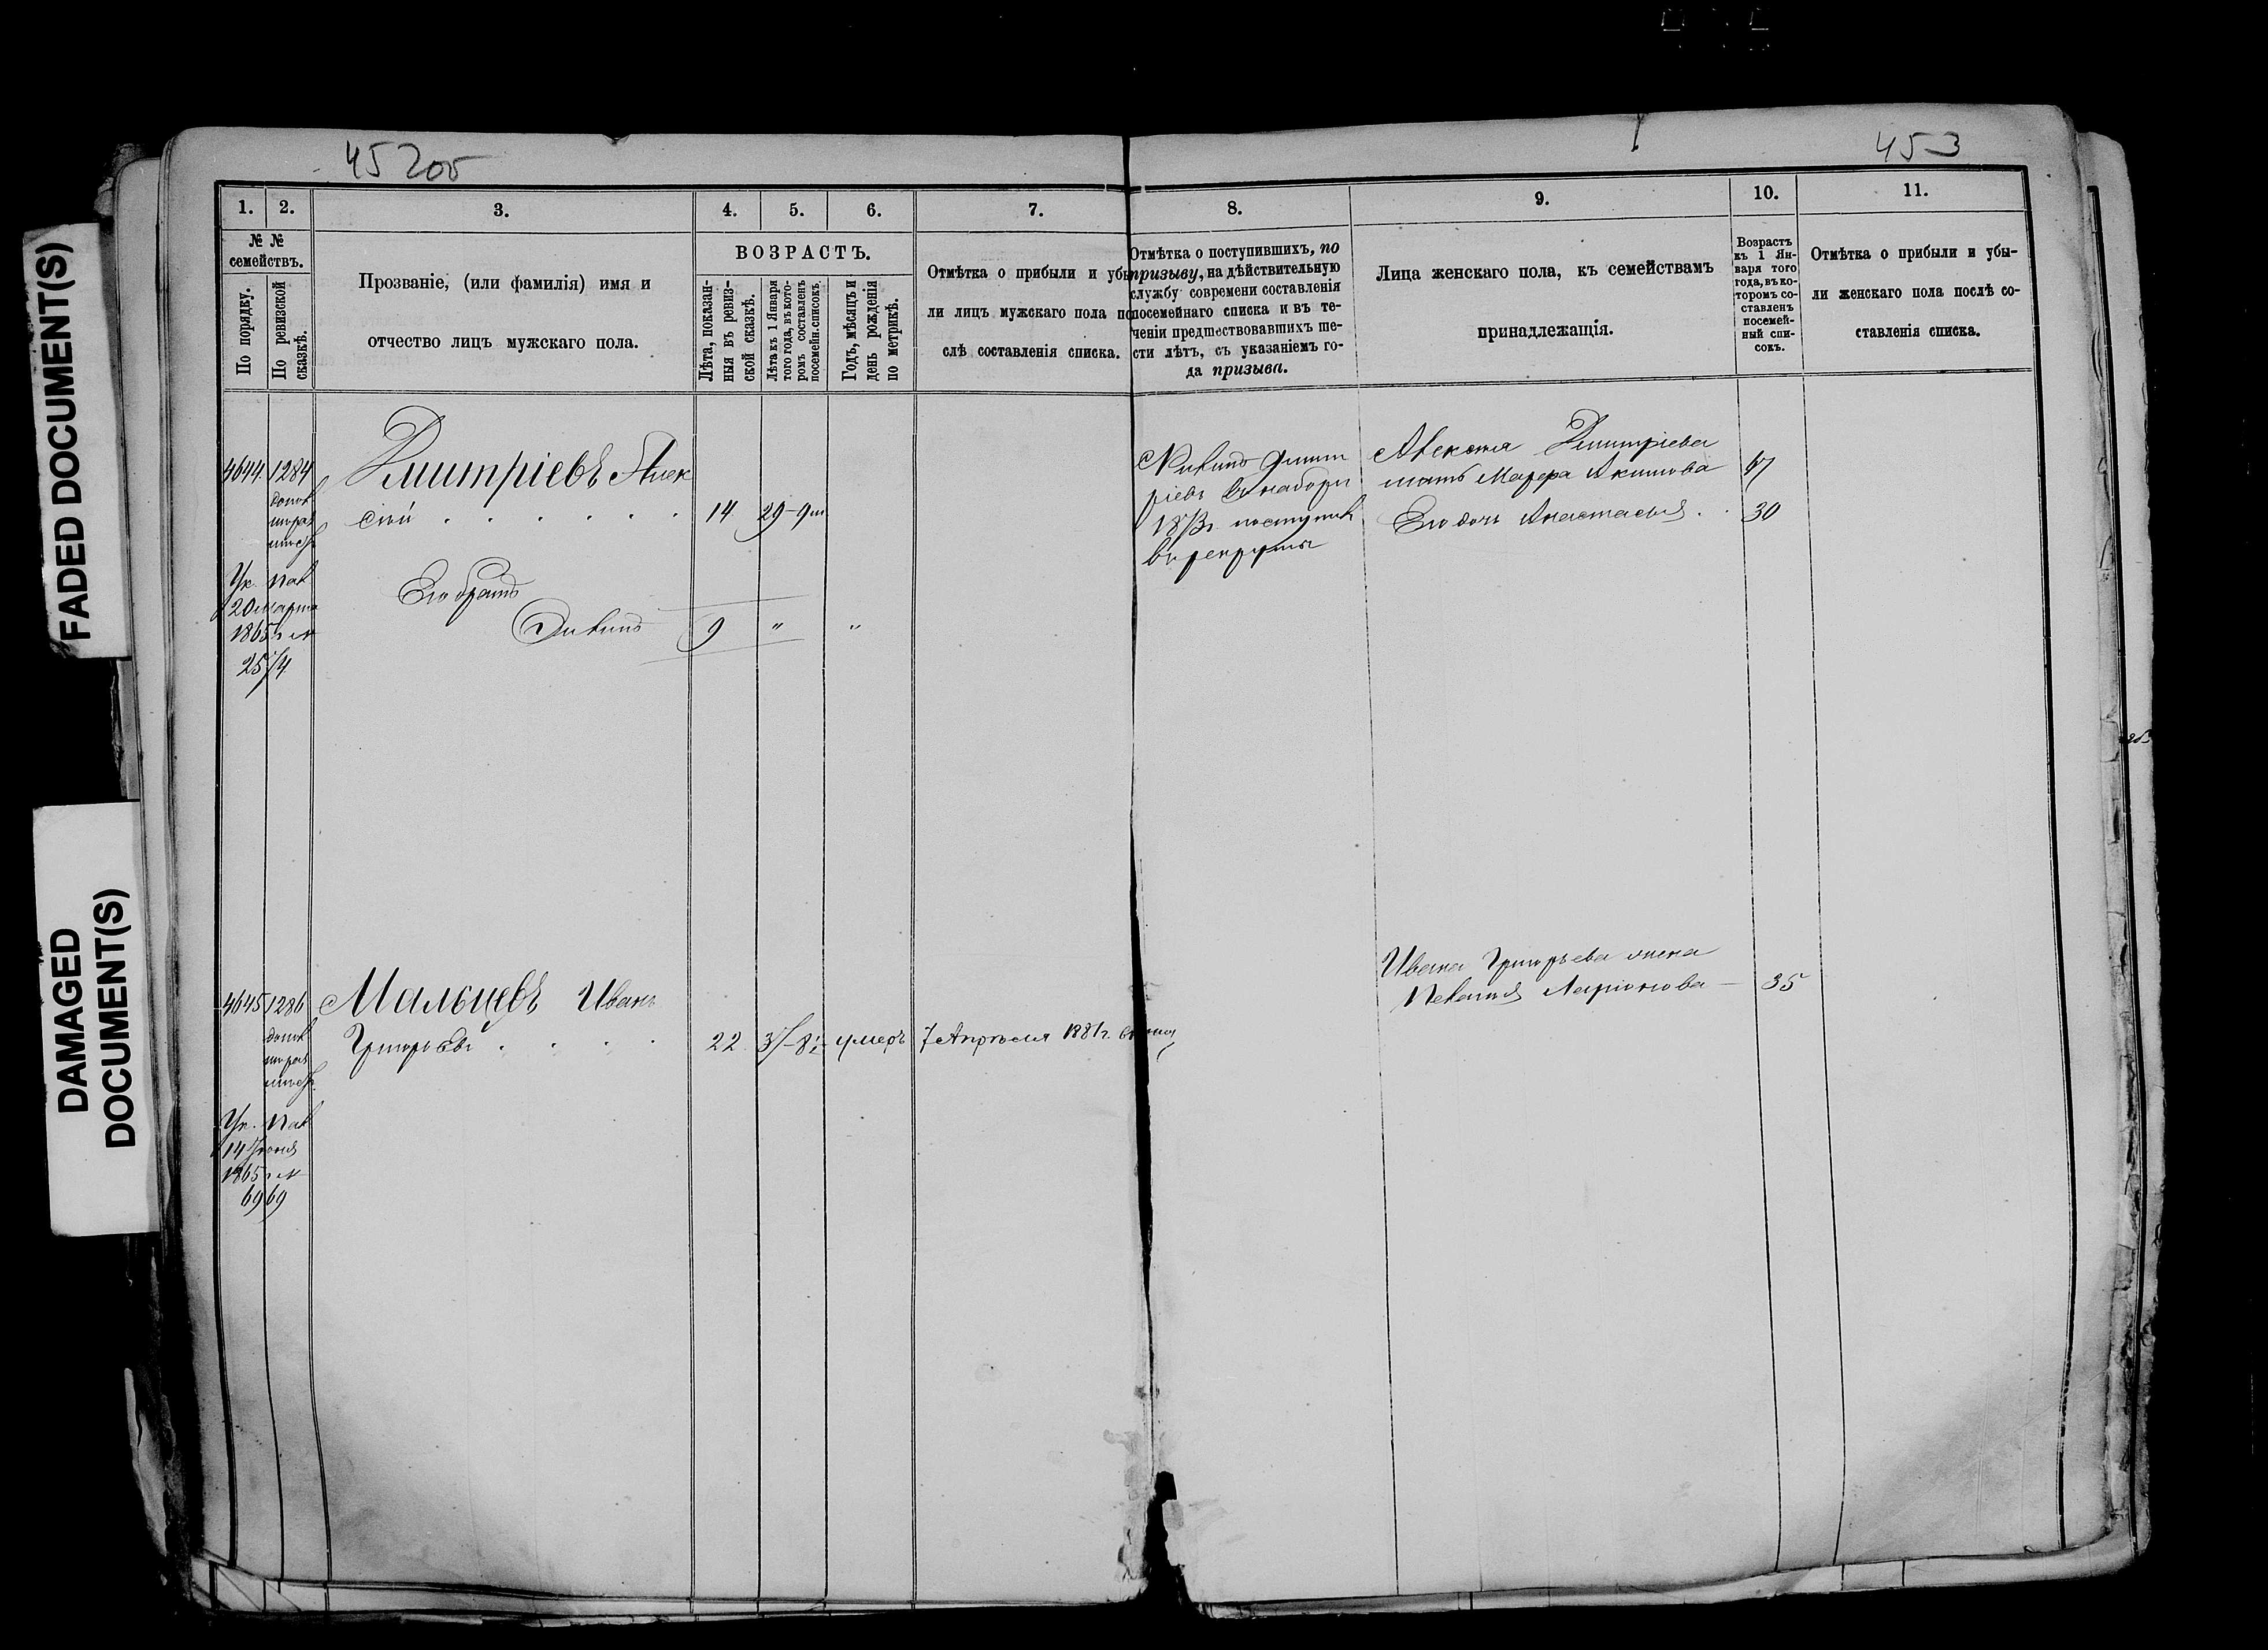 FADED DOCUMENT(S)
DAMAGED
DOCUMENT(S)
45 2об
453
1.
2.
3.
4.
5.
6.
7.
8.
9.
10.
11.
№ №
семействъ.
По порядку.
По ревизской
сказкѣ.
Прозваніе, (или фамилія) имя и
отчество лицъ мужскаго пола.
ВОЗРАСТЪ.
Лѣта, показан-
ныя въ ревиз-
ской сказкѣ.
Лѣта къ 1 Января
того года, въ кото-
ромъ составленъ
посемейн. списокъ.
Годъ, мѣсяцъ и
день рожденія
по метрикѣ.
Отмѣтка о прибыли и убы
ли лицъ мужскаго пола по
слѣ составленія списка.
Отмѣтка о поступившихъ, по
призыву, на дѣйствительную
службу современи составленія
посемейнаго списка и въ те-
ченіи предшествовавшихъ ше-
сти лѣтъ, съ указаніемъ го-
да призыва.
Лица женскаго пола, къ семействамъ
принадлежащія.
Возрастъ
къ 1 Ян-
варя того
года, въ ко-
торомъ со-
ставленъ
посемей-
ный спи-
сокъ.
Отмѣтка о прибыли и убы-
ли женскаго пола послѣ со-
ставленія списка.
4644. 1284
Дмитріевъ Алек
сѣй 14 29-9м
Ук. Пал
20 марта
1865 г №
2574
Его братъ
9 " "
Дмит
ріевъ въ наборъ
1873г. поступилъ
въ рекруты
Алексѣя Дмитріева
мать Марфа Акимова 47
Его дочь Анастасья 30
4645 1286
Мальцевъ Иванъ
Григорьевъ 22. умеръ 7 Апрѣля 1881г.
Ук. Пал
14 Іюня
1865 г №
6969
Ивана Григорьева жена
Пелагія Ларіонова - 35